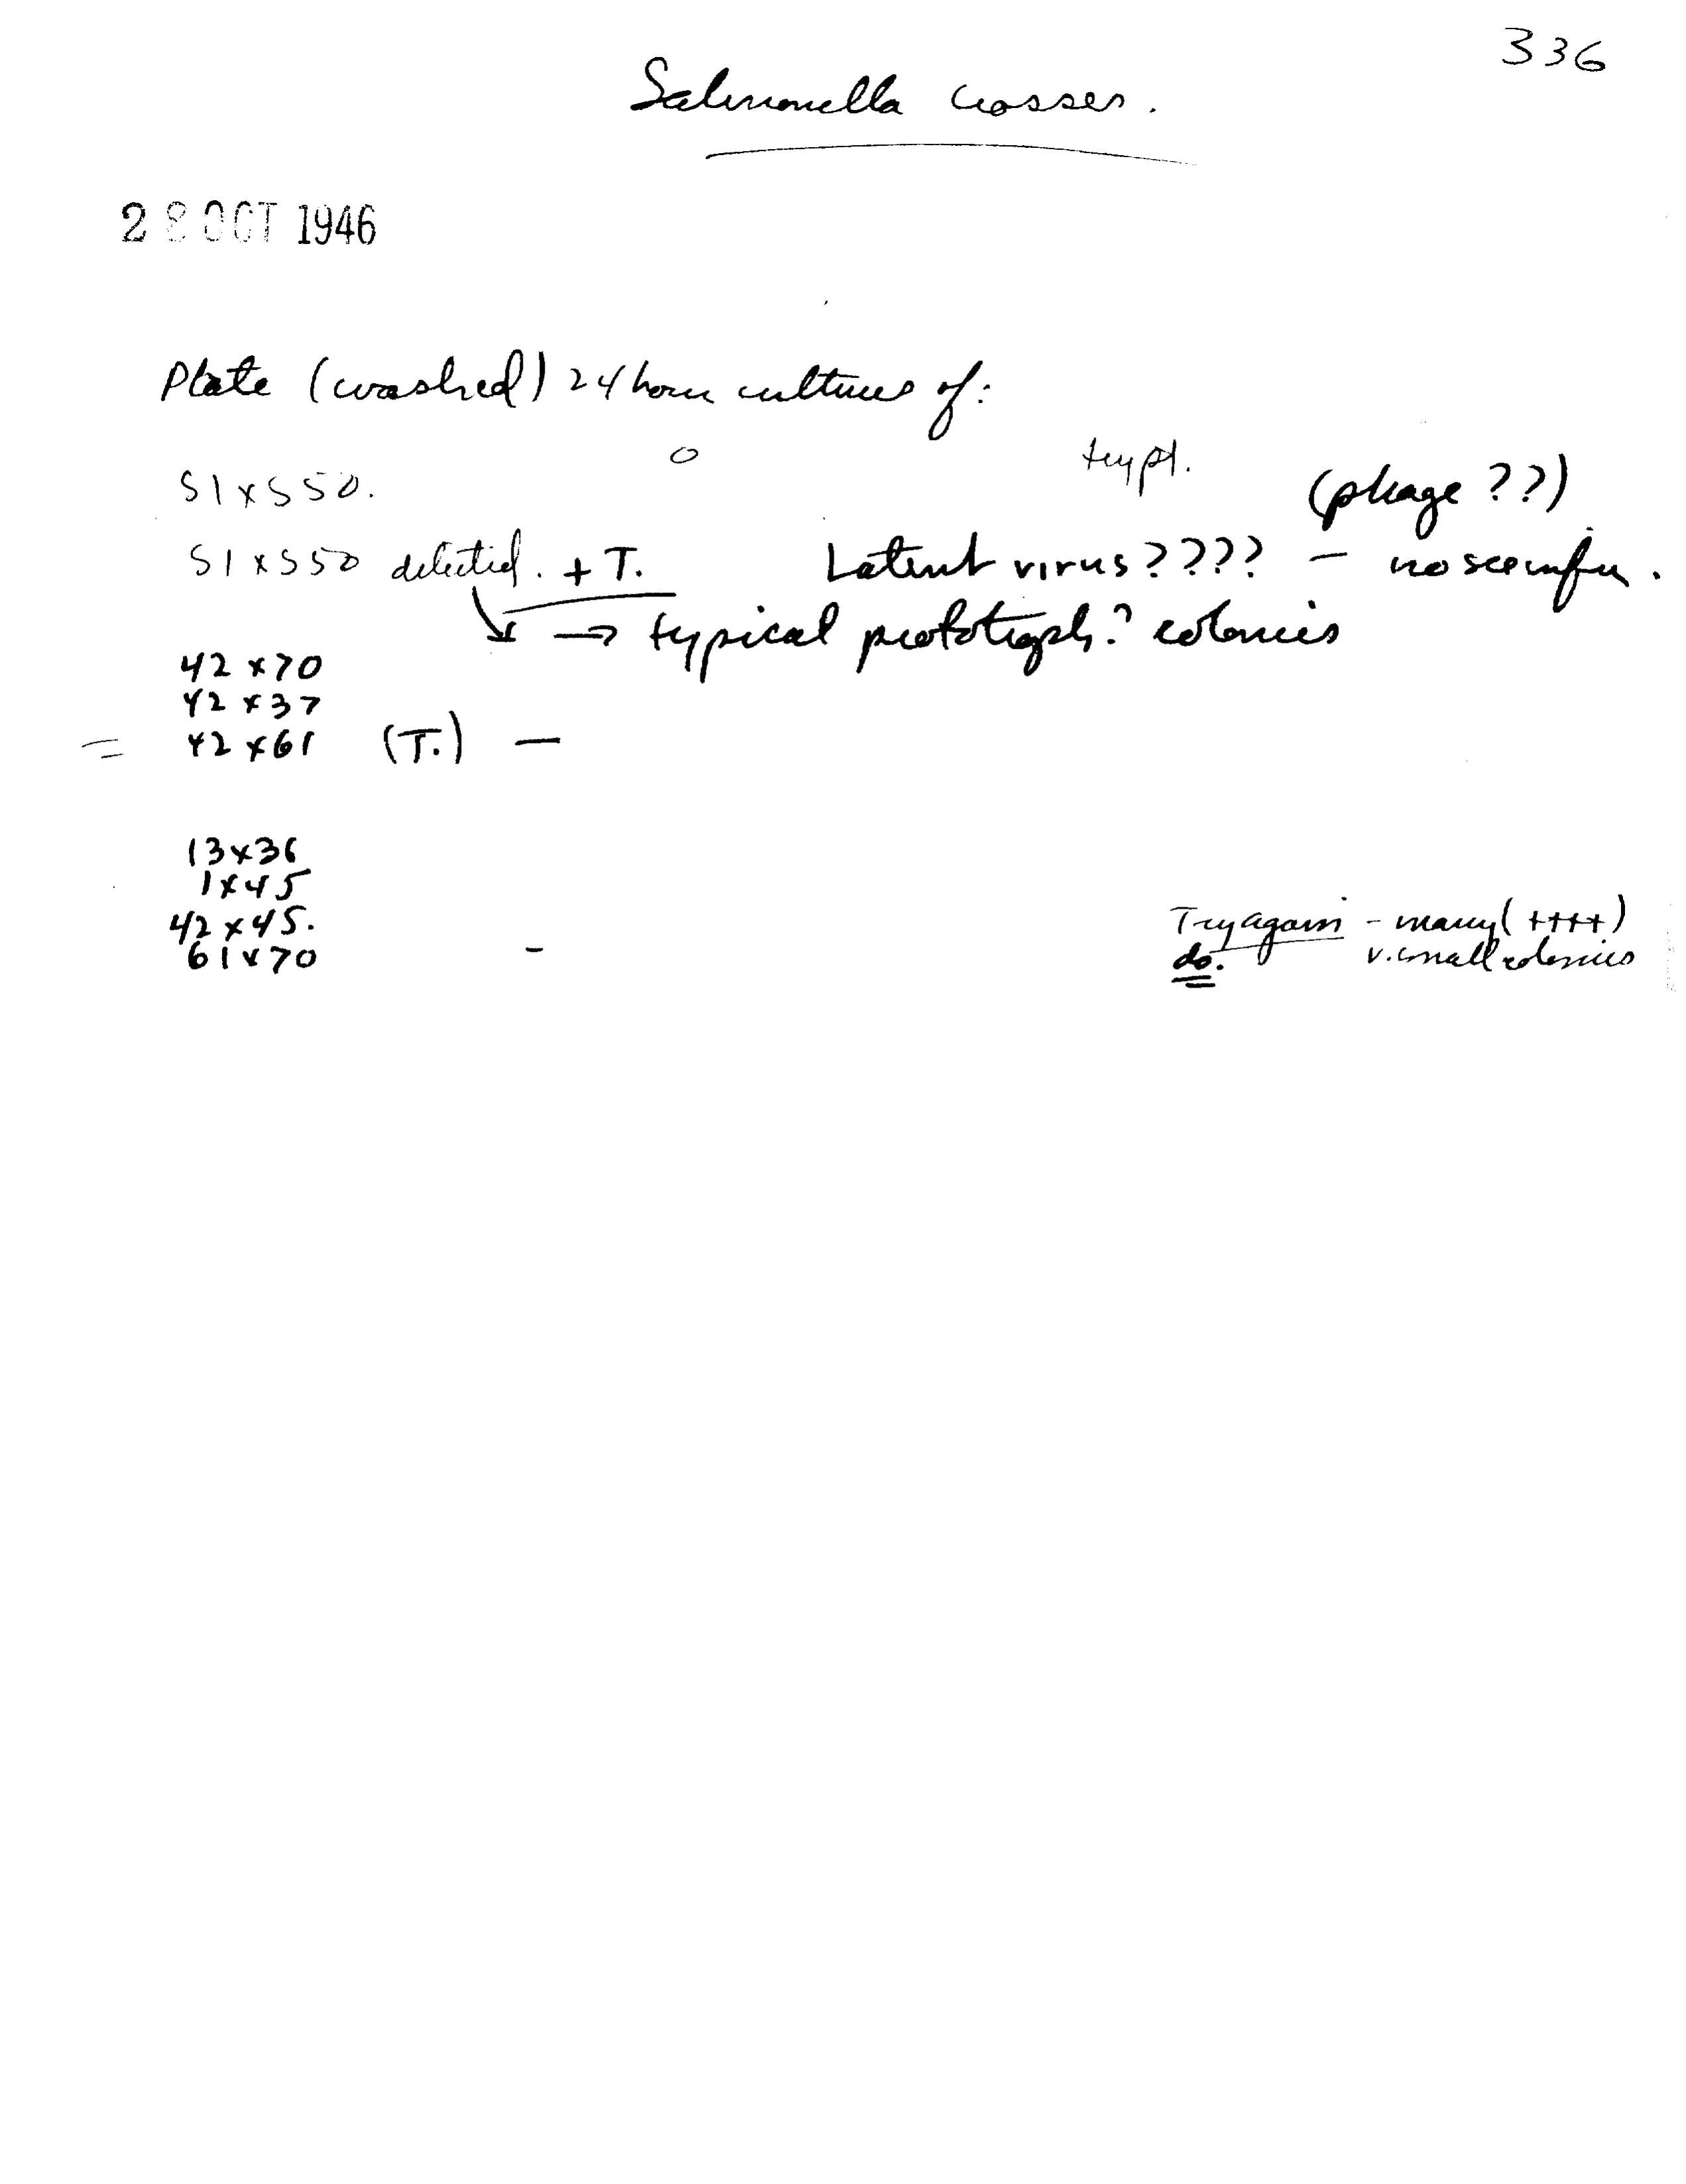 336
Salmonella crosses.
28 OCT 1946
Plate (washed) 24 hour cultures of:
o trypt.
S1 x S50. (phage ??)
S1 x S50 + T. Latent virus???? — no
→ typical prototroph? colonies
42 x 70
42 x 37
= 42 x 61 (T.) —
13 x 36
1 x 45
42 x 45. Try again - many (++++)
61 x 70 - do. v. small colonies